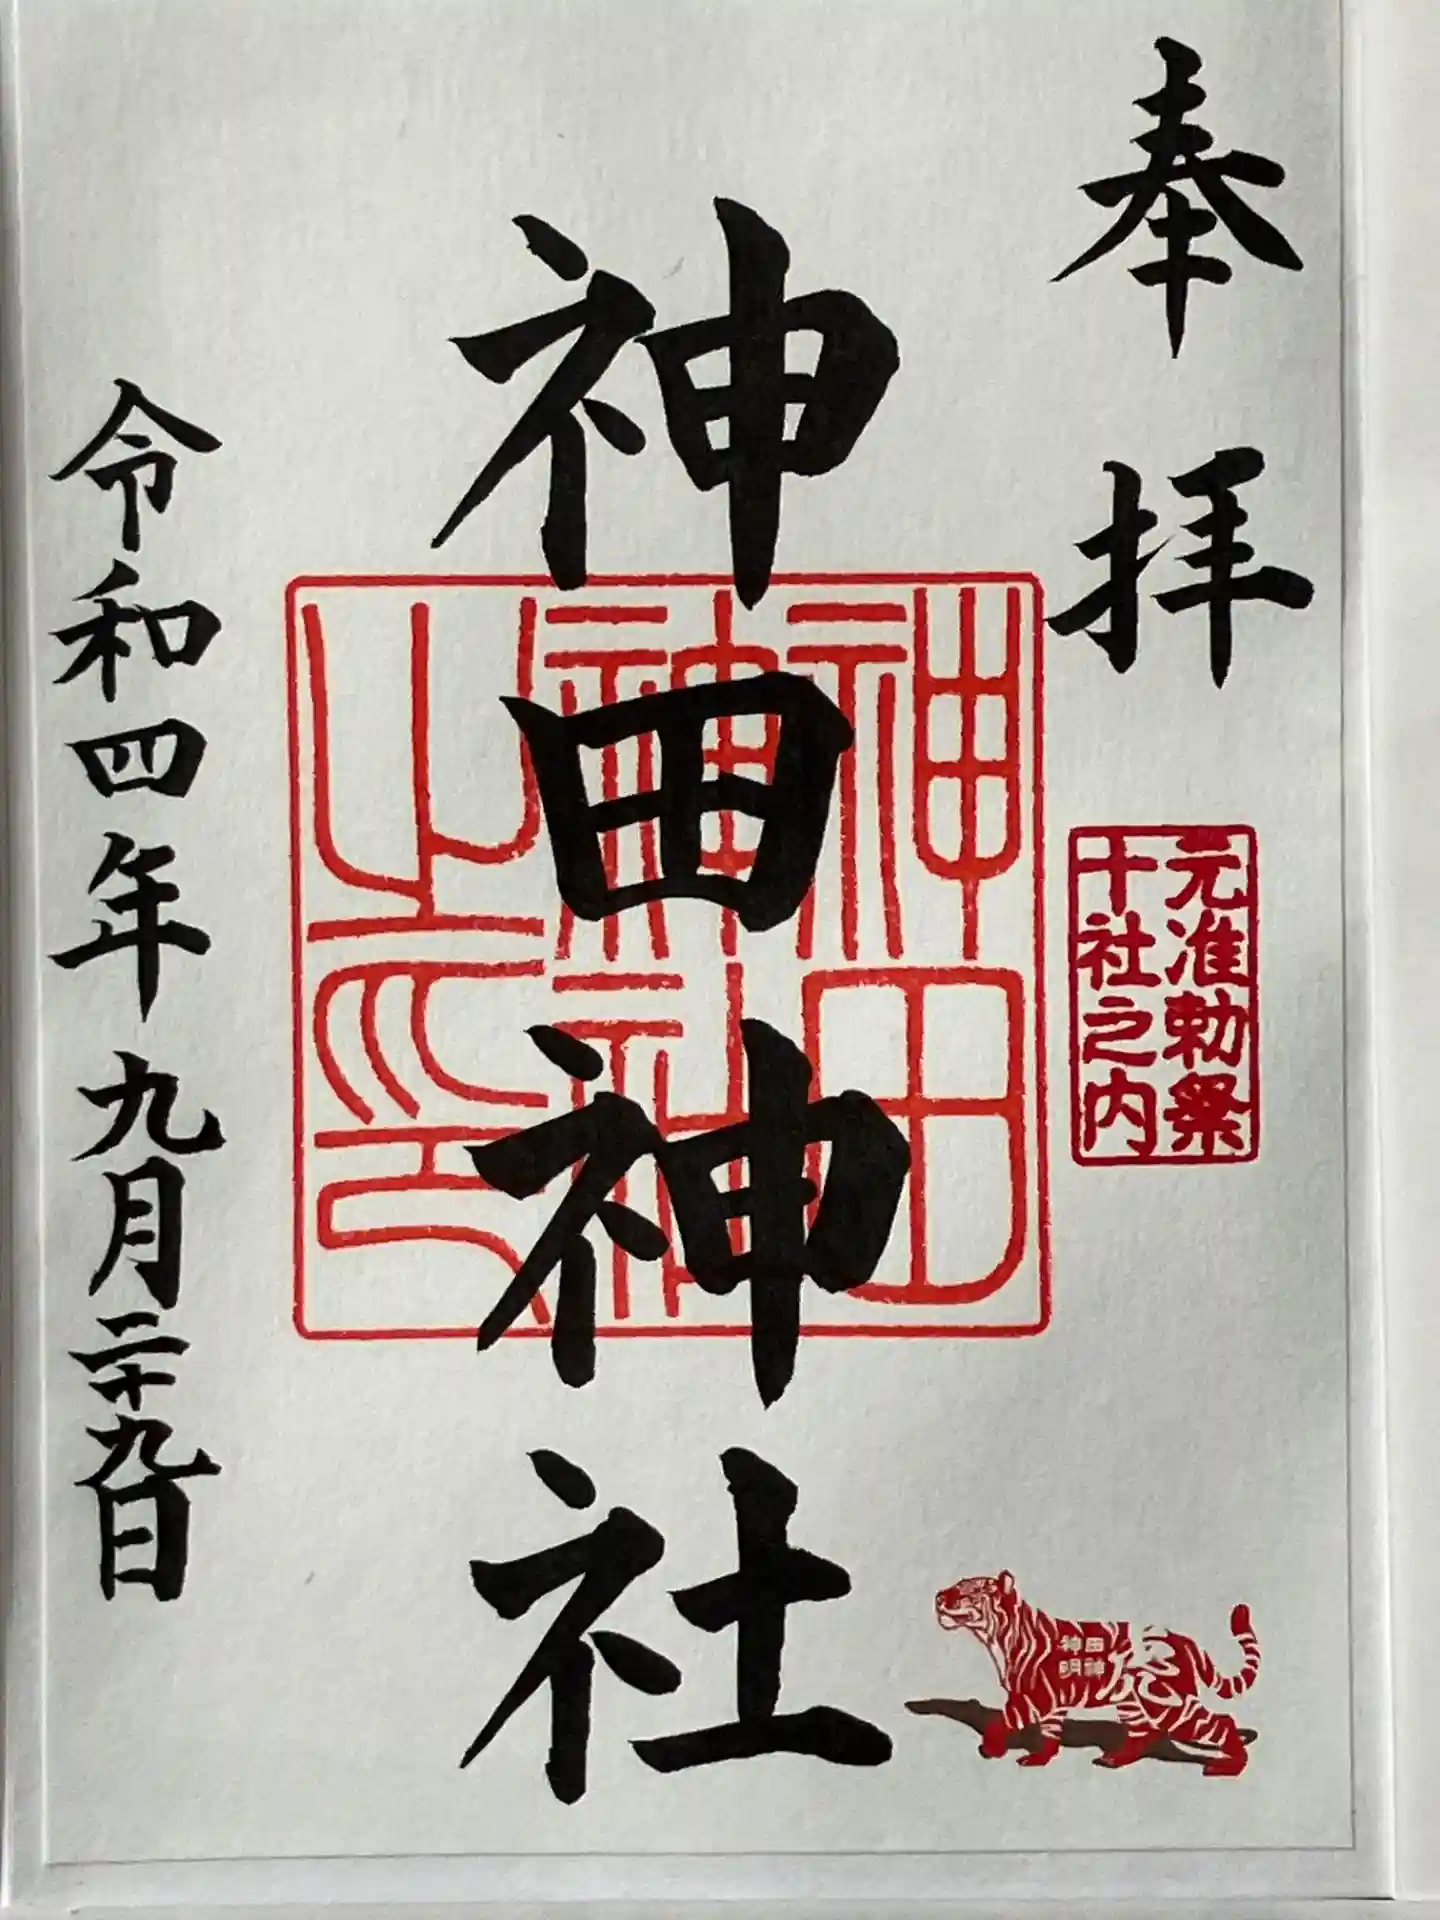 奉拝
元准勅祭
十社之内
神田神社
神田
神社
之印
田神
神明
虎
令和四年九月二十九日